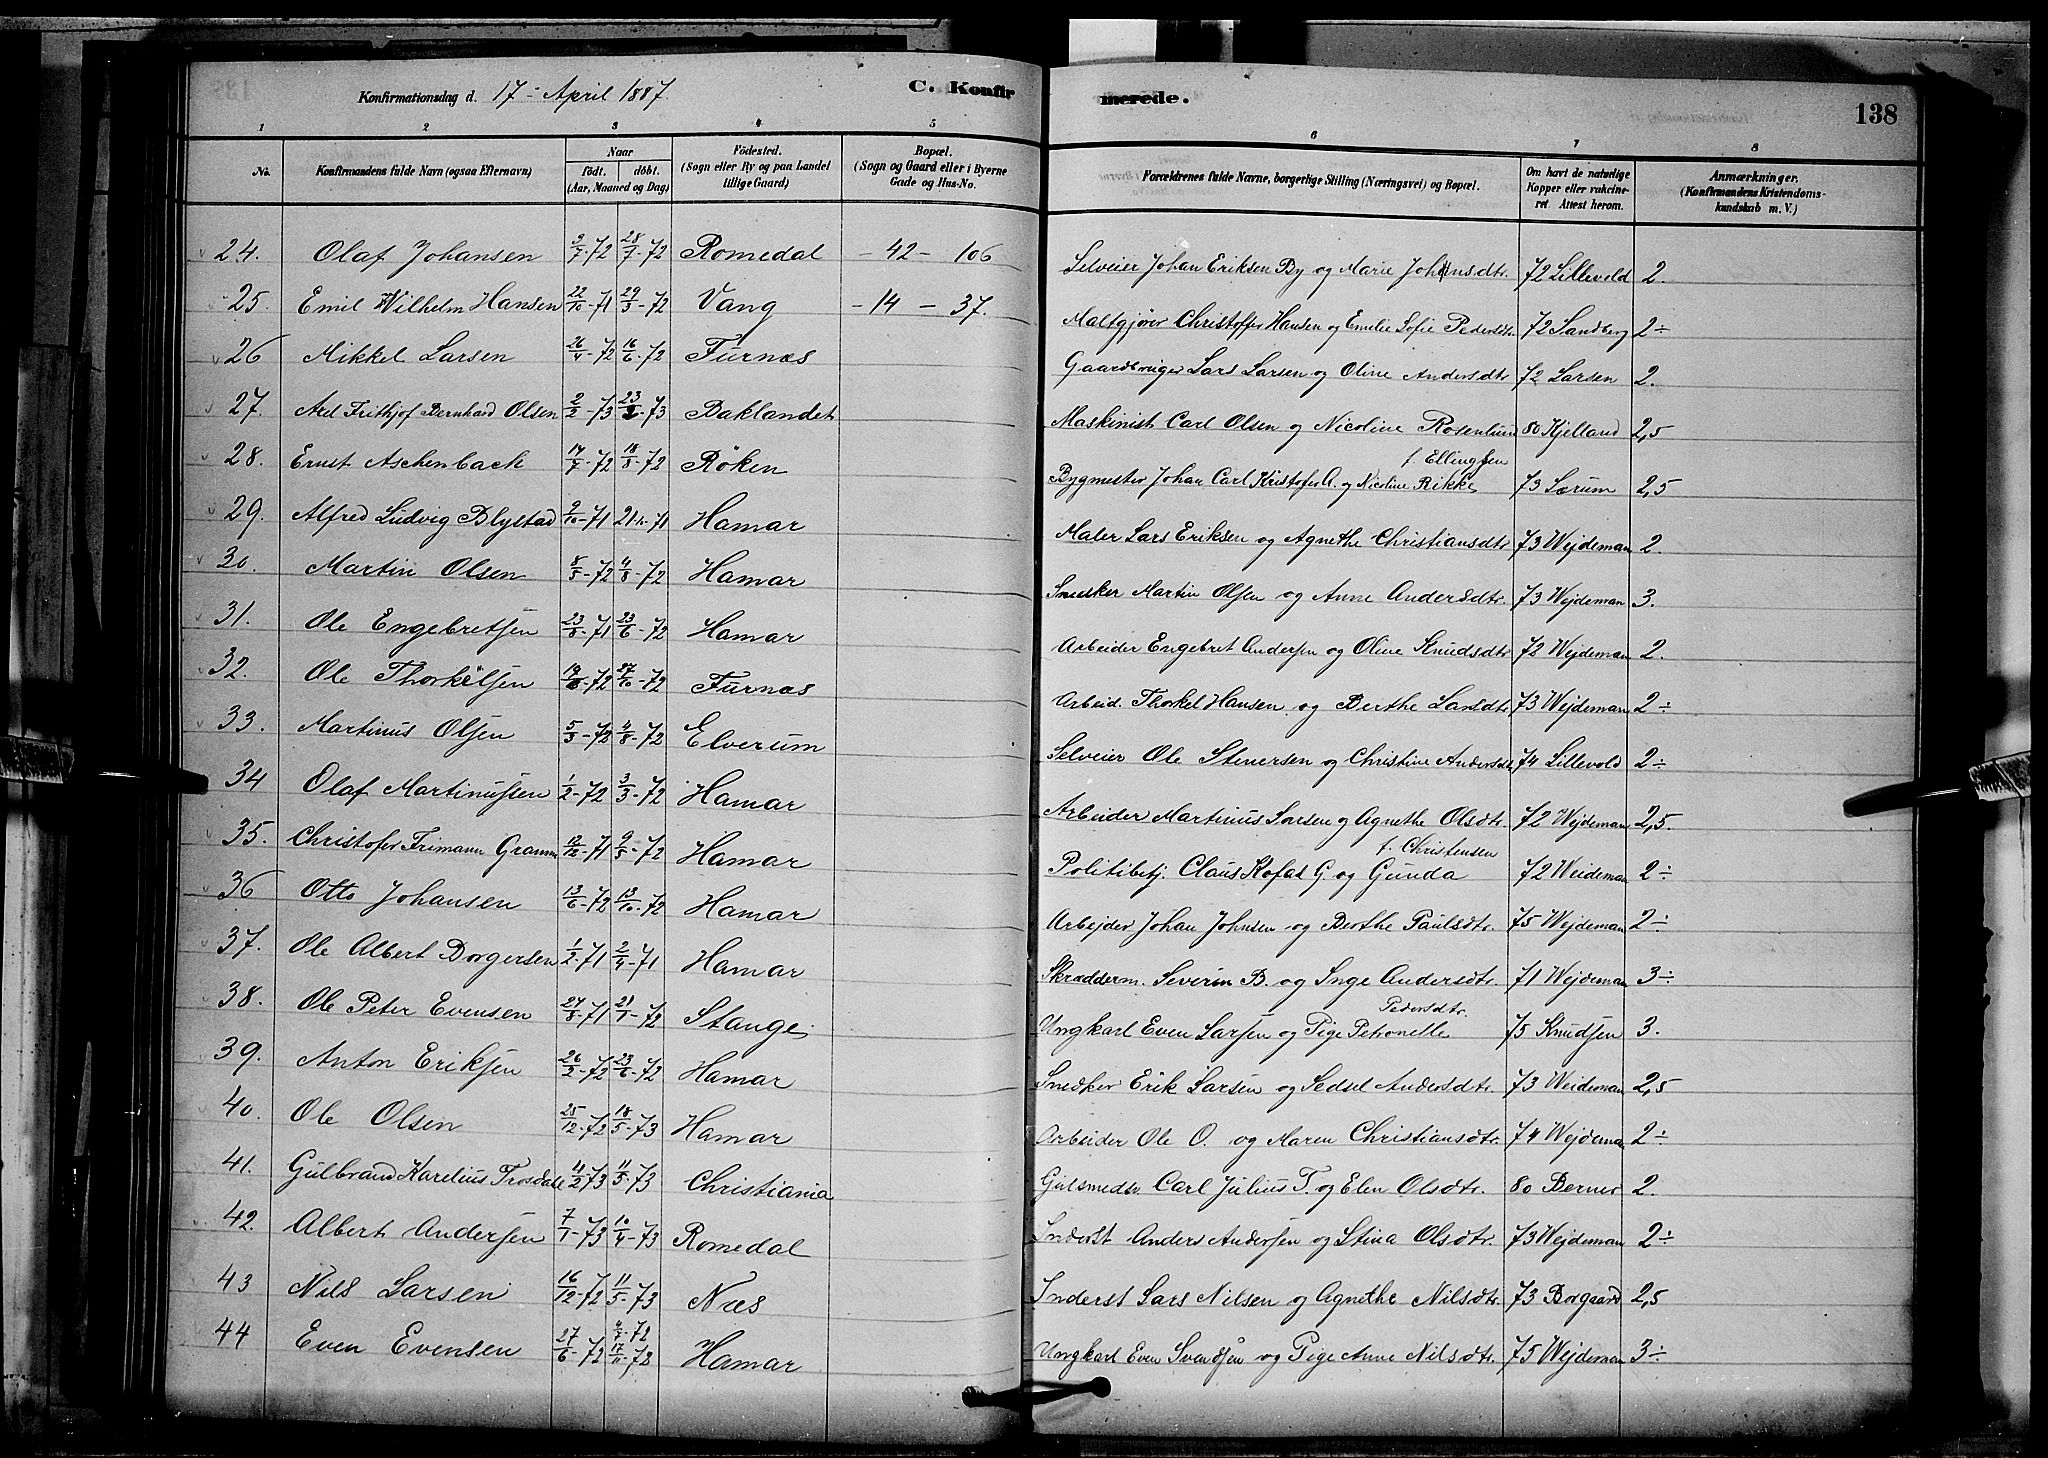 Konfirmationsdag d. 17 April 1887. C. Konfirmerede. 138
1 2 3 4 5 6 7 8
No. Konfirmandens fulde Navn (ogsaa Efternavn) Naar født. døbt. (Aar, Maaned og Dag) Fødested. (Sogn eller By og paa Landet tillige Gaard) Bopæl. (Sogn og Gaard eller i Byerne Gade og Hus-No. Forældrenes fulde Navne, borgerlige Stilling (Næringsvei) og Bopæl. Om havt de naturlige Kopper eller vakcineret. Attest herom. Anmærkninger. (Konfirmandens Kristendomskundskab m. V.)
24. Olaf Johansen 3/7-72 28/7-72 Romedal - 42 - 106 Selveier Johan Eriksen By og Marie Johnsdtr. 72 Lillevold 2.
25. Emil Wilhelm Hansen 22/10-71 29/3-72 Vang - 14 - 37. Maltgjører Christoffer Hansen og Emilie Sofie Pedersdtr. 72 Sandberg 2÷
26 Mikkel Larsen 26/4-72 16/6-72 Furnæs Gaardbruger Lars Larsen og Oline Andersdtr. 72 Larsen 2.
27. Axel Frithjof Bernhard Olsen 2/2-73 23/2-73 Baklandet Maskinist Carl Olsen og Nicoline Rosenlund 80 Kjelland 2,5
28. Ernst Aschenbach 14/7-72 18/8-72 Røken Bygmester Johan Carl Kristofer A. og Nicoline Rikke f. Ellingsen 73 Særum 2,5
29. Alfred Ludvig Blystad 9/10-71 21-71 Hamar Maler Lars Eriksen og Agnethe Christiansdtr. 73 Wejdeman 2.
30. Martin Olsen 8/5-72 4/8-72 Hamar Snedker Martin Olsen og Anne Andersdtr. 73 Wejdeman 3.
31. Ole Engebretsen 23/8-71 23/6-72 Hamar Arbeider Engebret Andersen og Oline Knudsdtr 72 Wejdeman 2.
32. Ole Thorkelsen 19/8-72 27/10-72 Furnæs Arbeid. Thorkel Hansen og Berthe Larsdtr. 73 Wejdeman 2÷
33. Martinus Olsen 5/5-72 4/8-72 Elverum Selveier Ole Stenersen og Christine Andersdtr. 74 Lillevold 2÷
34 Olaf Martinussen 1/2-72 3/3-72 Hamar Arbeider Martinus Larsen og Agnethe Olsdtr. 72 Wejdeman 2,5.
35. Christofer Frimann Gramm 12/12-71 9/5-72 Hamar Politibetj. Claus Kofat G. og Gunda f. Christensen 72 Weideman 2÷
36 Otto Johansen 13/6-72 13/10-72 Hamar Arbejder Johan Johnsen og Berthe Paulsdtr. 75 Wejdeman 2÷
37. Ole Albert Borgersen 1/2-71 2/4-71 Hamar Skrædderm. Severin B. og Inge Andersdtr. 71 Wejdeman 3÷
38. Ole Peter Evensen 27/8-71 21/1-72 Stange Ungkarl Even Larsen og Pige Petronelle Pedersdtr. 75 Knudsen 3.
39. Anton Eriksen 26/2-72 23/6-72 Hamar Snedker Erik Larsen og Sedsel Andersdtr. 73 Weideman 2,5
40. Ole Olsen 25/12-72 18/5-73 Hamar Arbeider Ole O. og Maren Christiansdtr. 74 Wejdeman 2÷
41. Gulbrand Karelius Trosdahl 11/2-73 11/5-73 Christiania Gulsmedsv. Carl Julius T. og Elen Olsdtr. 80 Berner 2.
42. Albert Andersen 7/1-73 10/4-73 Romedal Inderst Anders Andersen og Stina Olsdtr. 73 Wejdeman 2÷
43 Nils Larsen 16/12-72 11/5-73 Næs Inderst Lars Nilsen og Agnethe Nilsdtr. 73 Borgaard 2,5
44 Even Evensen 27/6-72 4/7-72 17/11-72 Hamar Ungkarl Even Svendsen og Pige Anne Nilsdtr. 75 Wejdeman 3÷